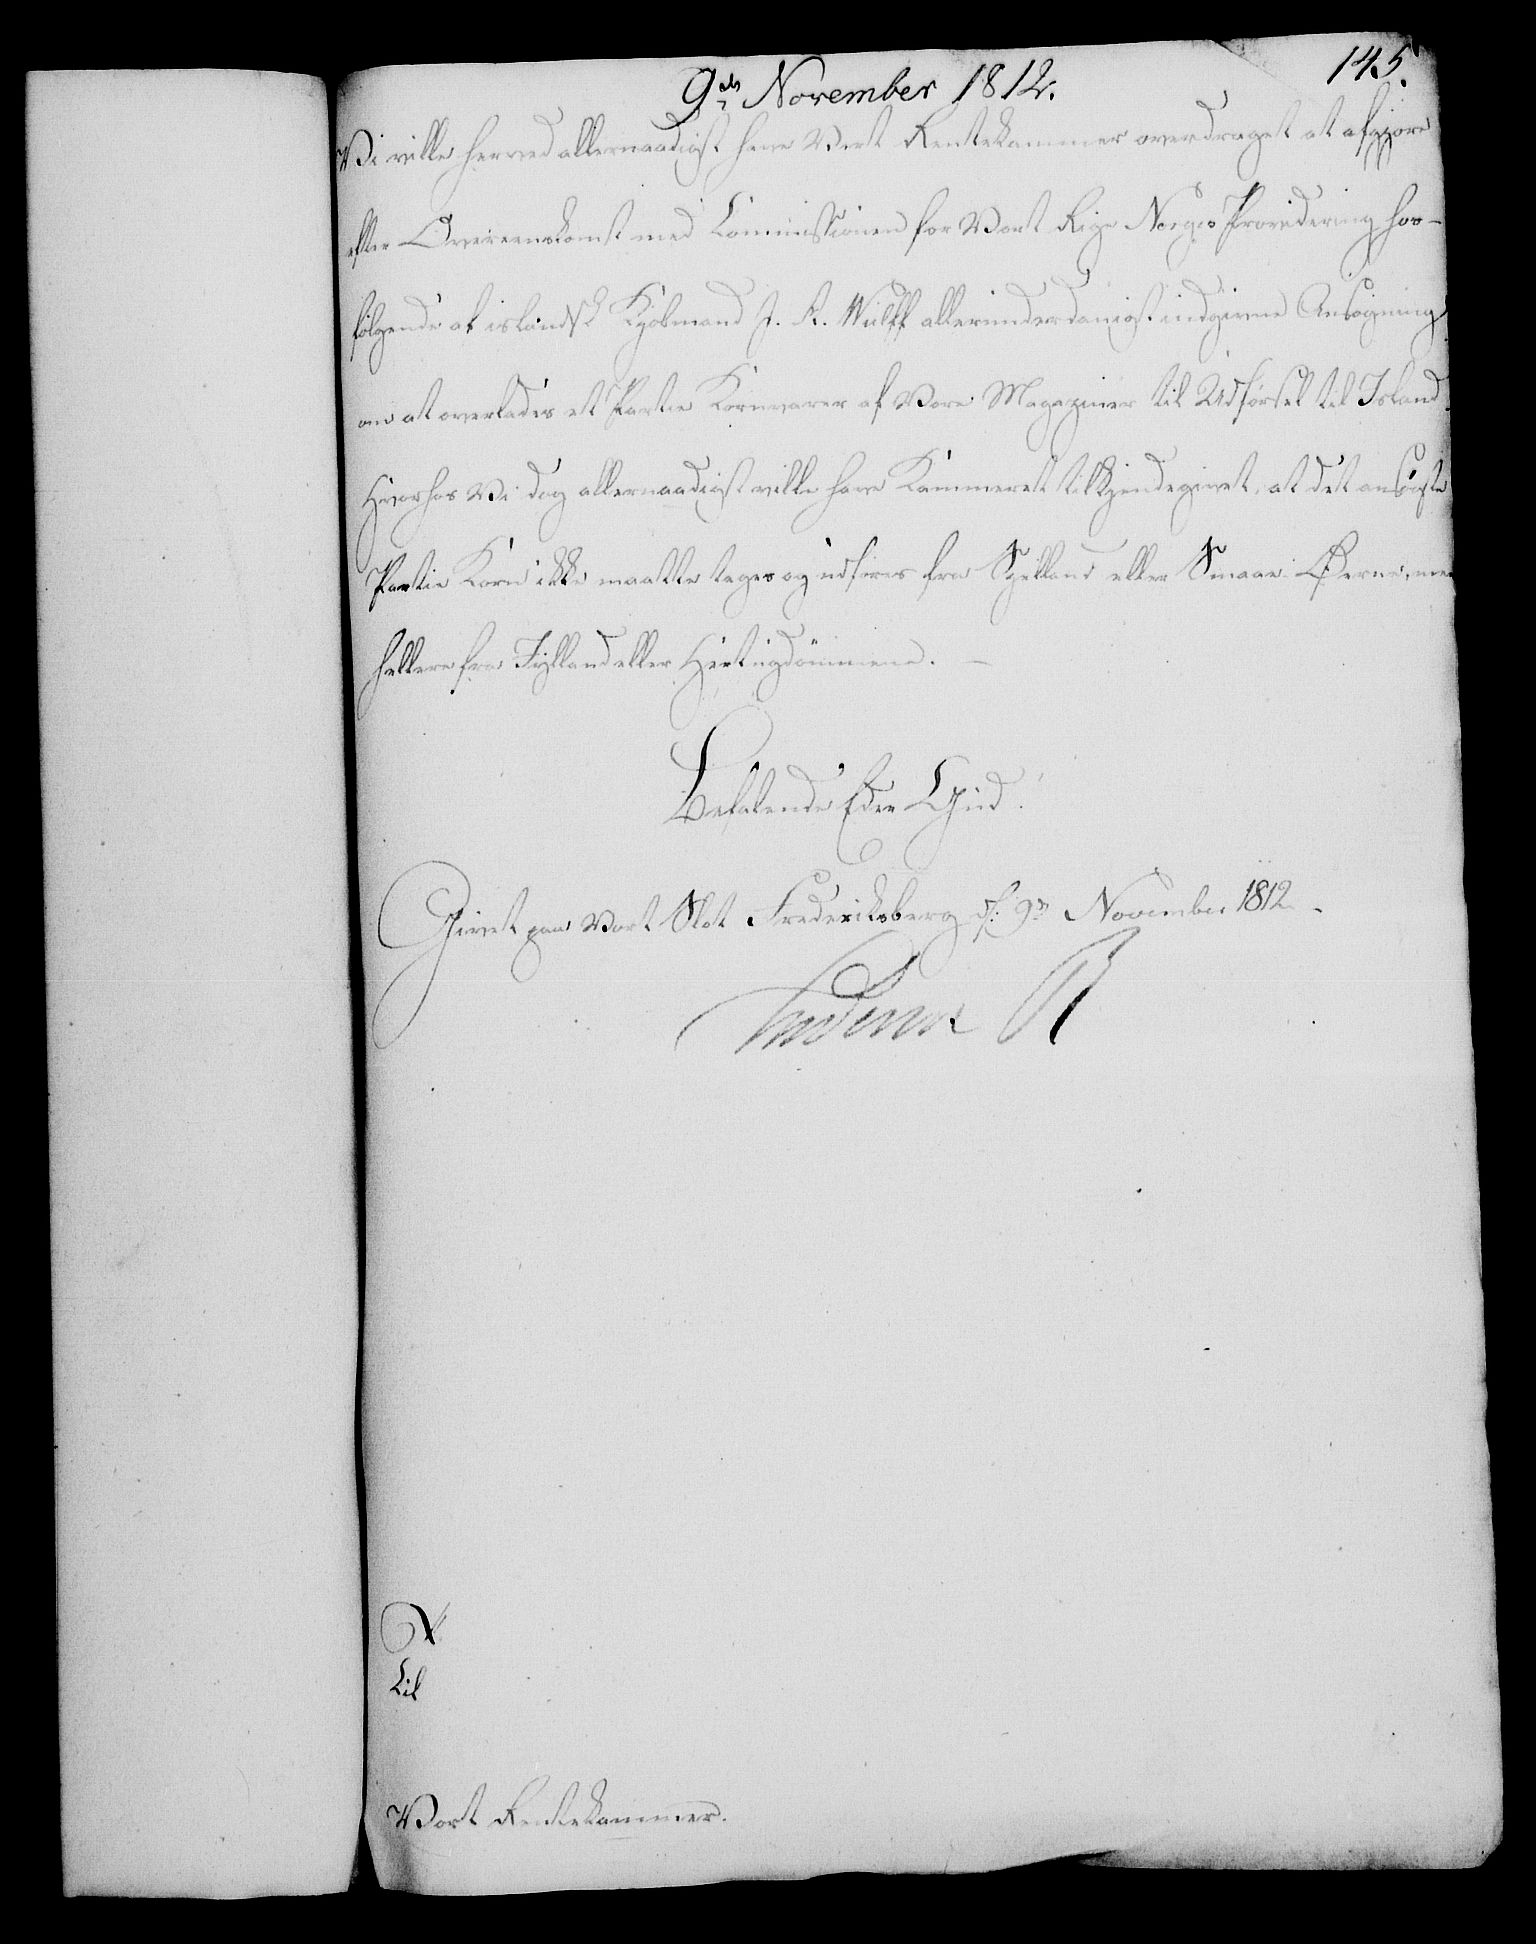 145.
9de November 1812.
Vi ville herved allernaadigst have Vort Rentekammer overdraget at afgjøre
efter Overeenskomst med Commissionen for Vort Rige Norges Providering hos-
følgende af islandsk Kjøbmand J. A. Wulff allerunderdanigst indgivne Ansøgning
om at overlades et Partie Kornvarer af Vore Magaziner til Udførsel til Island.
Hvorhos Vi dog allernaadigst ville have Kammeret tilkjendegivet, at det ansøgte
Partie Korn ikke maatte tages og udføres fra Sjelland eller Smaae Øerne, men
hellere fra Jylland eller Hertugdømmene. —
Befalende Eder Gud!
Givet paa Vort Slot Frederiksberg d: 9de November 1812.
Frederik R
Til
Vort Rentekammer.